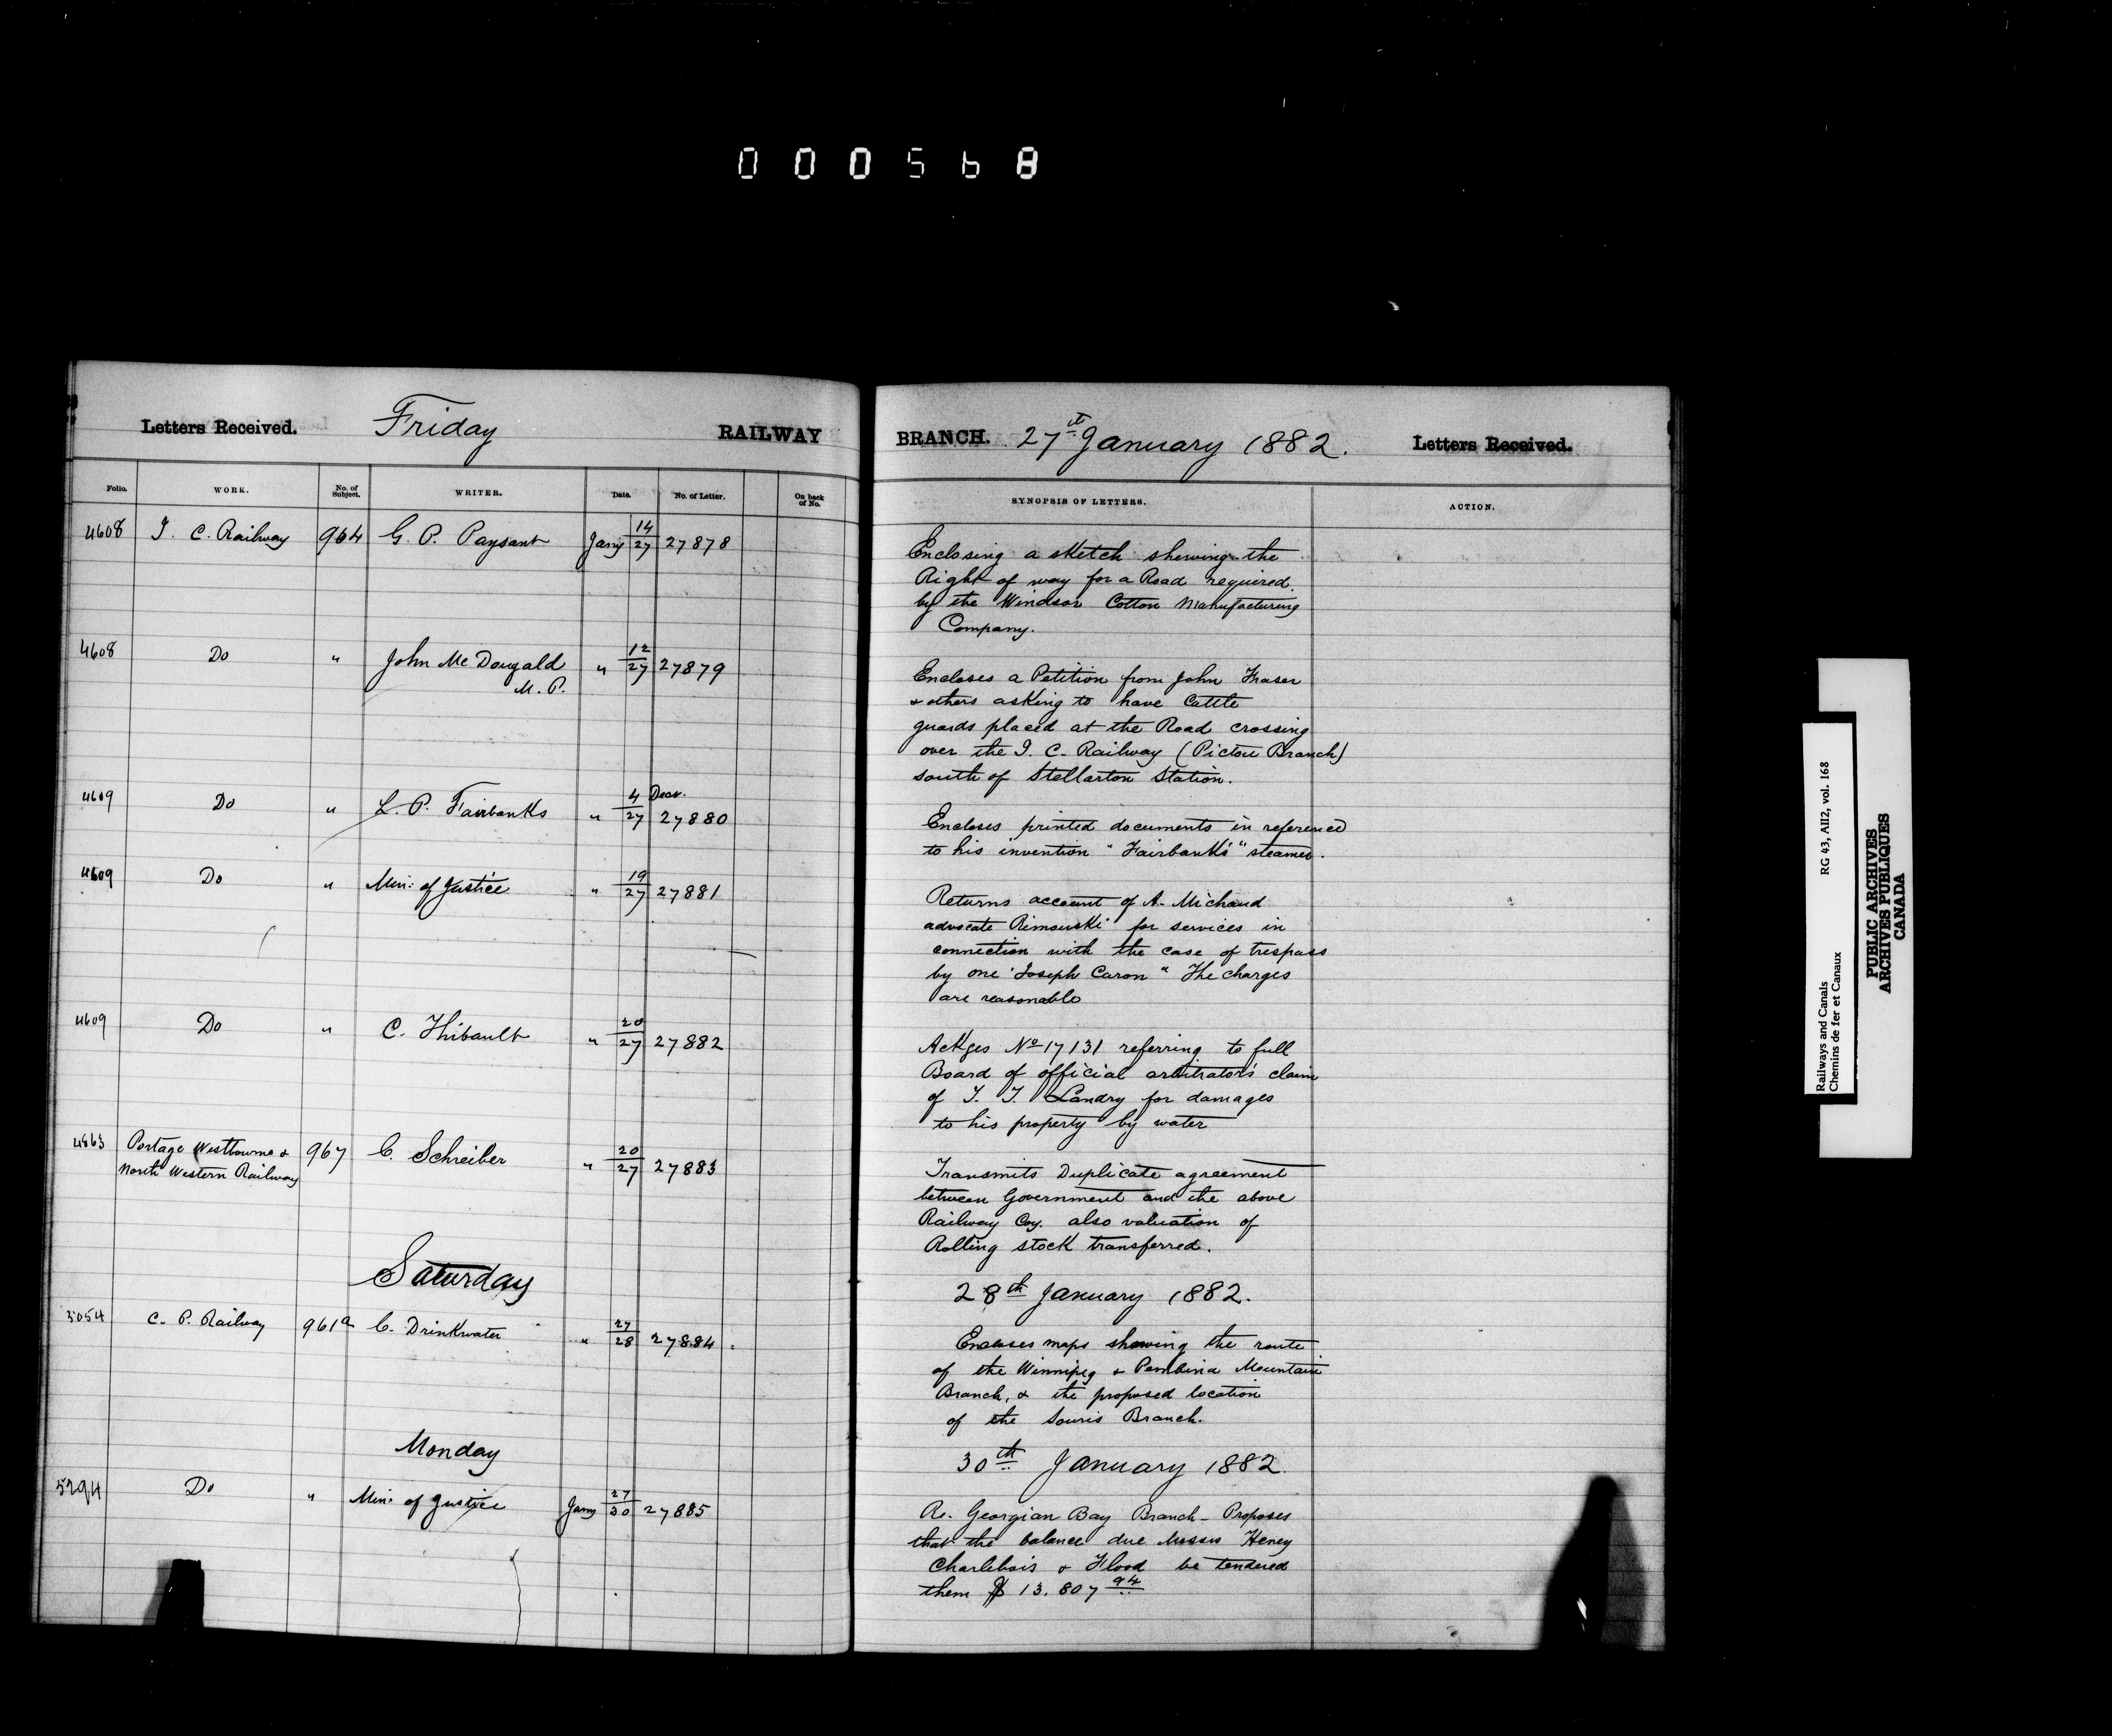 000568
Letters Received. Friday RAILWAY
BRANCH. 27th January 1882. Letters Received.
Folio. WORK. No. of Subject. WRITER. Date. No. of Letter. On back of No.
SYNOPSIS OF LETTERS. ACTION.
4608 I. C. Railway 964 G. P. Paysant Jany 14/27 27878
Enclosing a sketch shewing the
Right of way for a Road required
by the Windsor Cotton Manufacturing
Company.
4608 Do " John McDougald M.P. " 12/27 27879
Encloses a Petition from John Fraser
& others asking to have Cattle
guards placed at the Road crossing
over the I. C. Railway (Pictou Branch)
south of Stellarton Station.
4609 Do " L. P. Fairbanks " 4 Decr./27 27880
Encloses printed documents in reference
to his invention "Fairbanks" steamer.
4609 Do " Min: of Justice " 19/27 27881
Returns account of A. Michaud
advocate Rimouski for services in
connection with the case of trespass
by one "Joseph Caron" The charges
are reasonable
4609 Do " C. Thibault " 20/27 27882
Ackges No 17131 referring to full
Board of official arbitrators claim
of T. T. Landry for damages
to his property by water
4863 Portage Westbourne & North Western Railway 967 C. Schreiber " 20/27 27883
Transmits Duplicate agreement
between Government and the above
Railway Coy. also valuation of
Rolling stock transferred.
Saturday
28th January 1882.
5054 C. P. Railway 961a C. Drinkwater " 27/28 27884
Encloses maps showing the route
of the Winnipeg & Pembina Mountain
Branch, & the proposed location
of the Souris Branch.
Monday
30th January 1882.
5294 Do " Min: of Justice Jany 27/30 27885
Re. Georgian Bay Branch - Proposes
that the balance due Messrs Heney
Charlebois & Flood be tendered
them $13.807 94
Railways and Canals RG 43, AII2, vol. 168
Chemins de fer et Canaux
PUBLIC ARCHIVES
ARCHIVES PUBLIQUES
CANADA